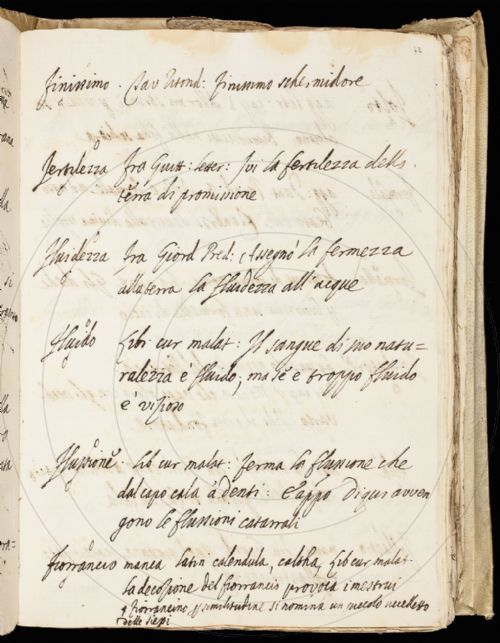 Finissimo . Tav Ritond: Finissimo schermidore
Fertilezza Fra Guitt: letter: Ivi la fertilezza della
terra di promissione
Fluidezza Fra Giord Pred: Assegnò la fermezza
alla terra la fluidezza all'acque
Fluido Libr cur malat: Il sangue di suo natu=
ralezza è fluido, ma se è troppo fluido
è vizioso
Flussione Lib cur malat: Ferma la flussione che
dal capo cala à denti: E appo Di qui avven
gono le flussioni catarrali
Fiorrancio manca latin calendula, caltha, Lib cur malat.
La decozione del fiorrancio provoca i mestrui
fiorrancino, similitudine si nomina un piccolo uccelletto
delle siepi